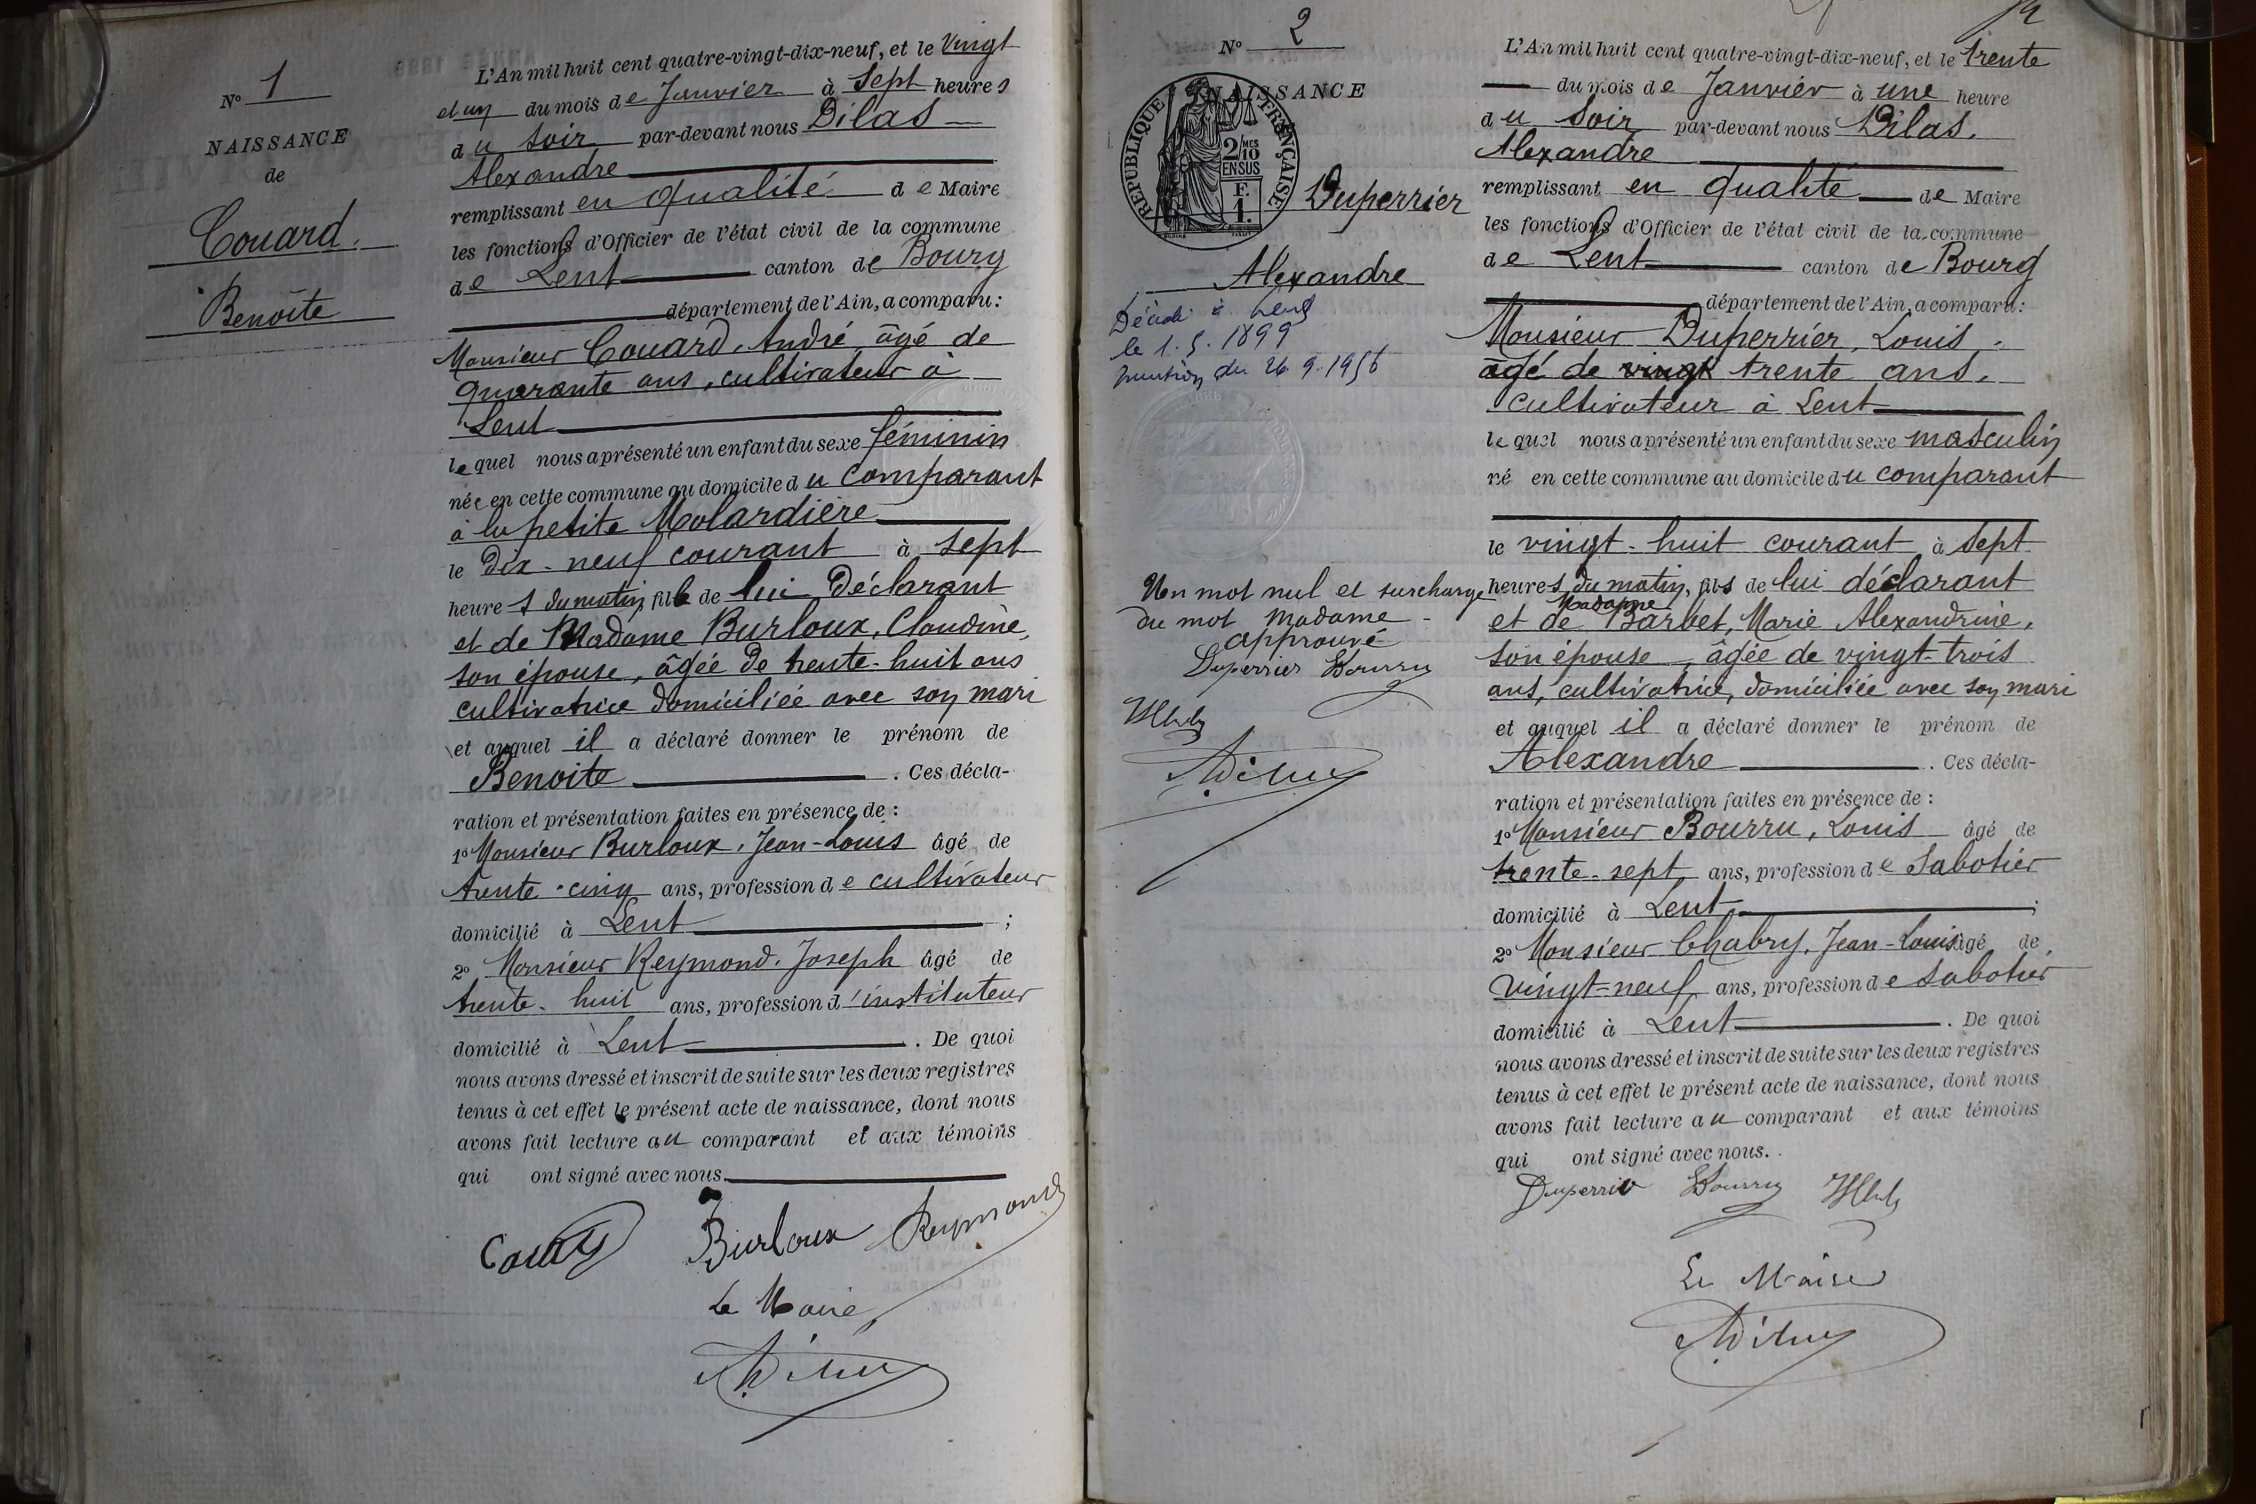 N° 1
NAISSANCE
de
Couard.
Benoîte
L'An mil huit cent quatre-vingt-dix-neuf, et le Vingt
et un du mois de Janvier à sept heures
du soir par-devant nous Dilas
Alexandre
remplissant en qualité de Maire
les fonctions d'Officier de l'état civil de la commune
de Lent canton de Bourg
département de l'Ain, a comparu :
Monsieur Couard, André, âgé de
quarante ans, cultivateur à
Lent
lequel nous a présenté un enfant du sexe féminin
née en cette commune au domicile du comparant
à la petite Molardière
le dix-neuf courant à sept
heures du matin, fille de lui Déclarant
et de Madame Burloux, Claudine,
son épouse, âgée de trente-huit ans
cultivatrice domiciliée avec son mari
et auquel il a déclaré donner le prénom de
Benoite . Ces décla-
ration et présentation faites en présence de :
1° Monsieur Burloux, Jean-Louis âgé de
trente-cinq ans, profession de cultivateur
domicilié à Lent ;
2° Monsieur Reymond, Joseph âgé de
trente-huit ans, profession d'instituteur
domicilié à Lent . De quoi
nous avons dressé et inscrit de suite sur les deux registres
tenus à cet effet le présent acte de naissance, dont nous
avons fait lecture au comparant et aux témoins
qui ont signé avec nous.
Burloux Reymond
Le Maire
N° 2
NAISSANCE
RÉPUBLIQUE FRANÇAISE
2/10 MES
EN SUS
F.
1.
Duperrier
Alexandre
Décédé à Lent
le 1.5.1899
mention du 26.9.1956
Un mot nul et surcharge
du mot madame
approuvé
Duperrier Bourru
L'An mil huit cent quatre-vingt-dix-neuf, et le trente
du mois de Janvier à une heure
du soir par-devant nous Dilas.
Alexandre
remplissant en qualité de Maire
les fonctions d'Officier de l'état civil de la commune
de Lent canton de Bourg
département de l'Ain, a comparu :
Monsieur Duperrier, Louis.
âgé de vingt trente ans,
cultivateur à Lent
lequel nous a présenté un enfant du sexe masculin
né en cette commune au domicile du comparant
le vingt-huit courant à sept
heures du matin, fils de lui déclarant
Madame
et de Barbet, Marie Alexandrine,
son épouse, âgée de vingt-trois
ans, cultivatrice, domiciliée avec son mari
et auquel il a déclaré donner le prénom de
Alexandre . Ces décla-
ration et présentation faites en présence de :
1° Monsieur Bourru, Louis âgé de
trente-sept ans, profession de Sabotier
domicilié à Lent ;
2° Monsieur Chabry, Jean-Louis âgé de
vingt-neuf ans, profession de sabotier
domicilié à Lent . De quoi
nous avons dressé et inscrit de suite sur les deux registres
tenus à cet effet le présent acte de naissance, dont nous
avons fait lecture au comparant et aux témoins
qui ont signé avec nous.
Duperrier Bourru
Le Maire